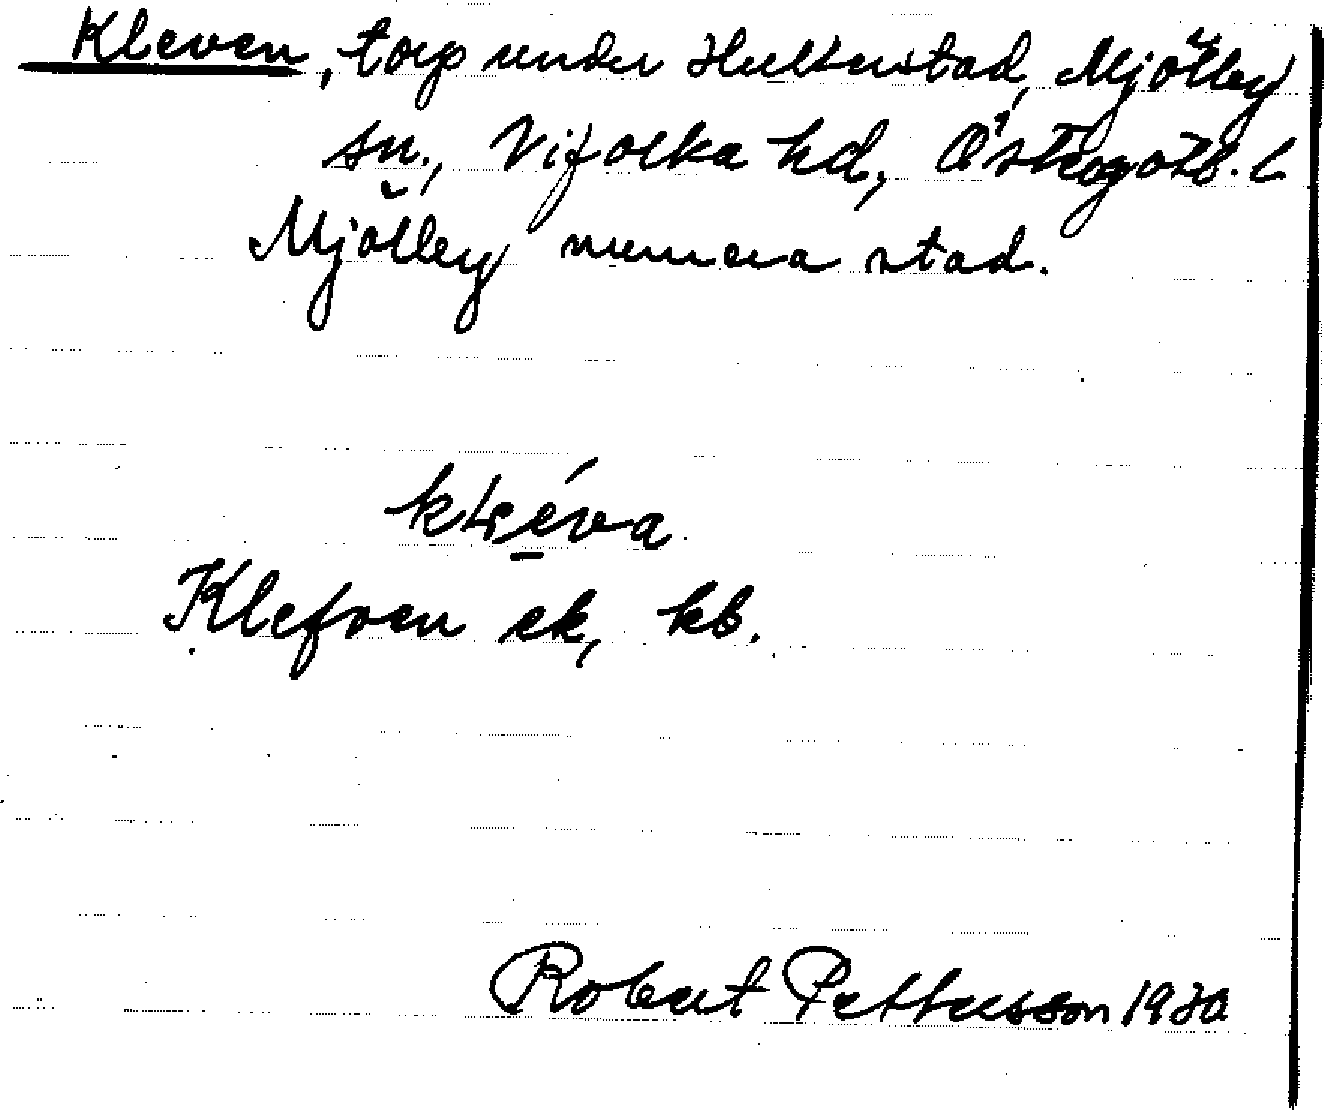 Kleven, torp under Hulterstad, Mjölby
sn., Vifolka hd, Östergötl. l
Mjölby numera stad.
kléva
Klefven ek, kb.
Robert Pettersson 1930